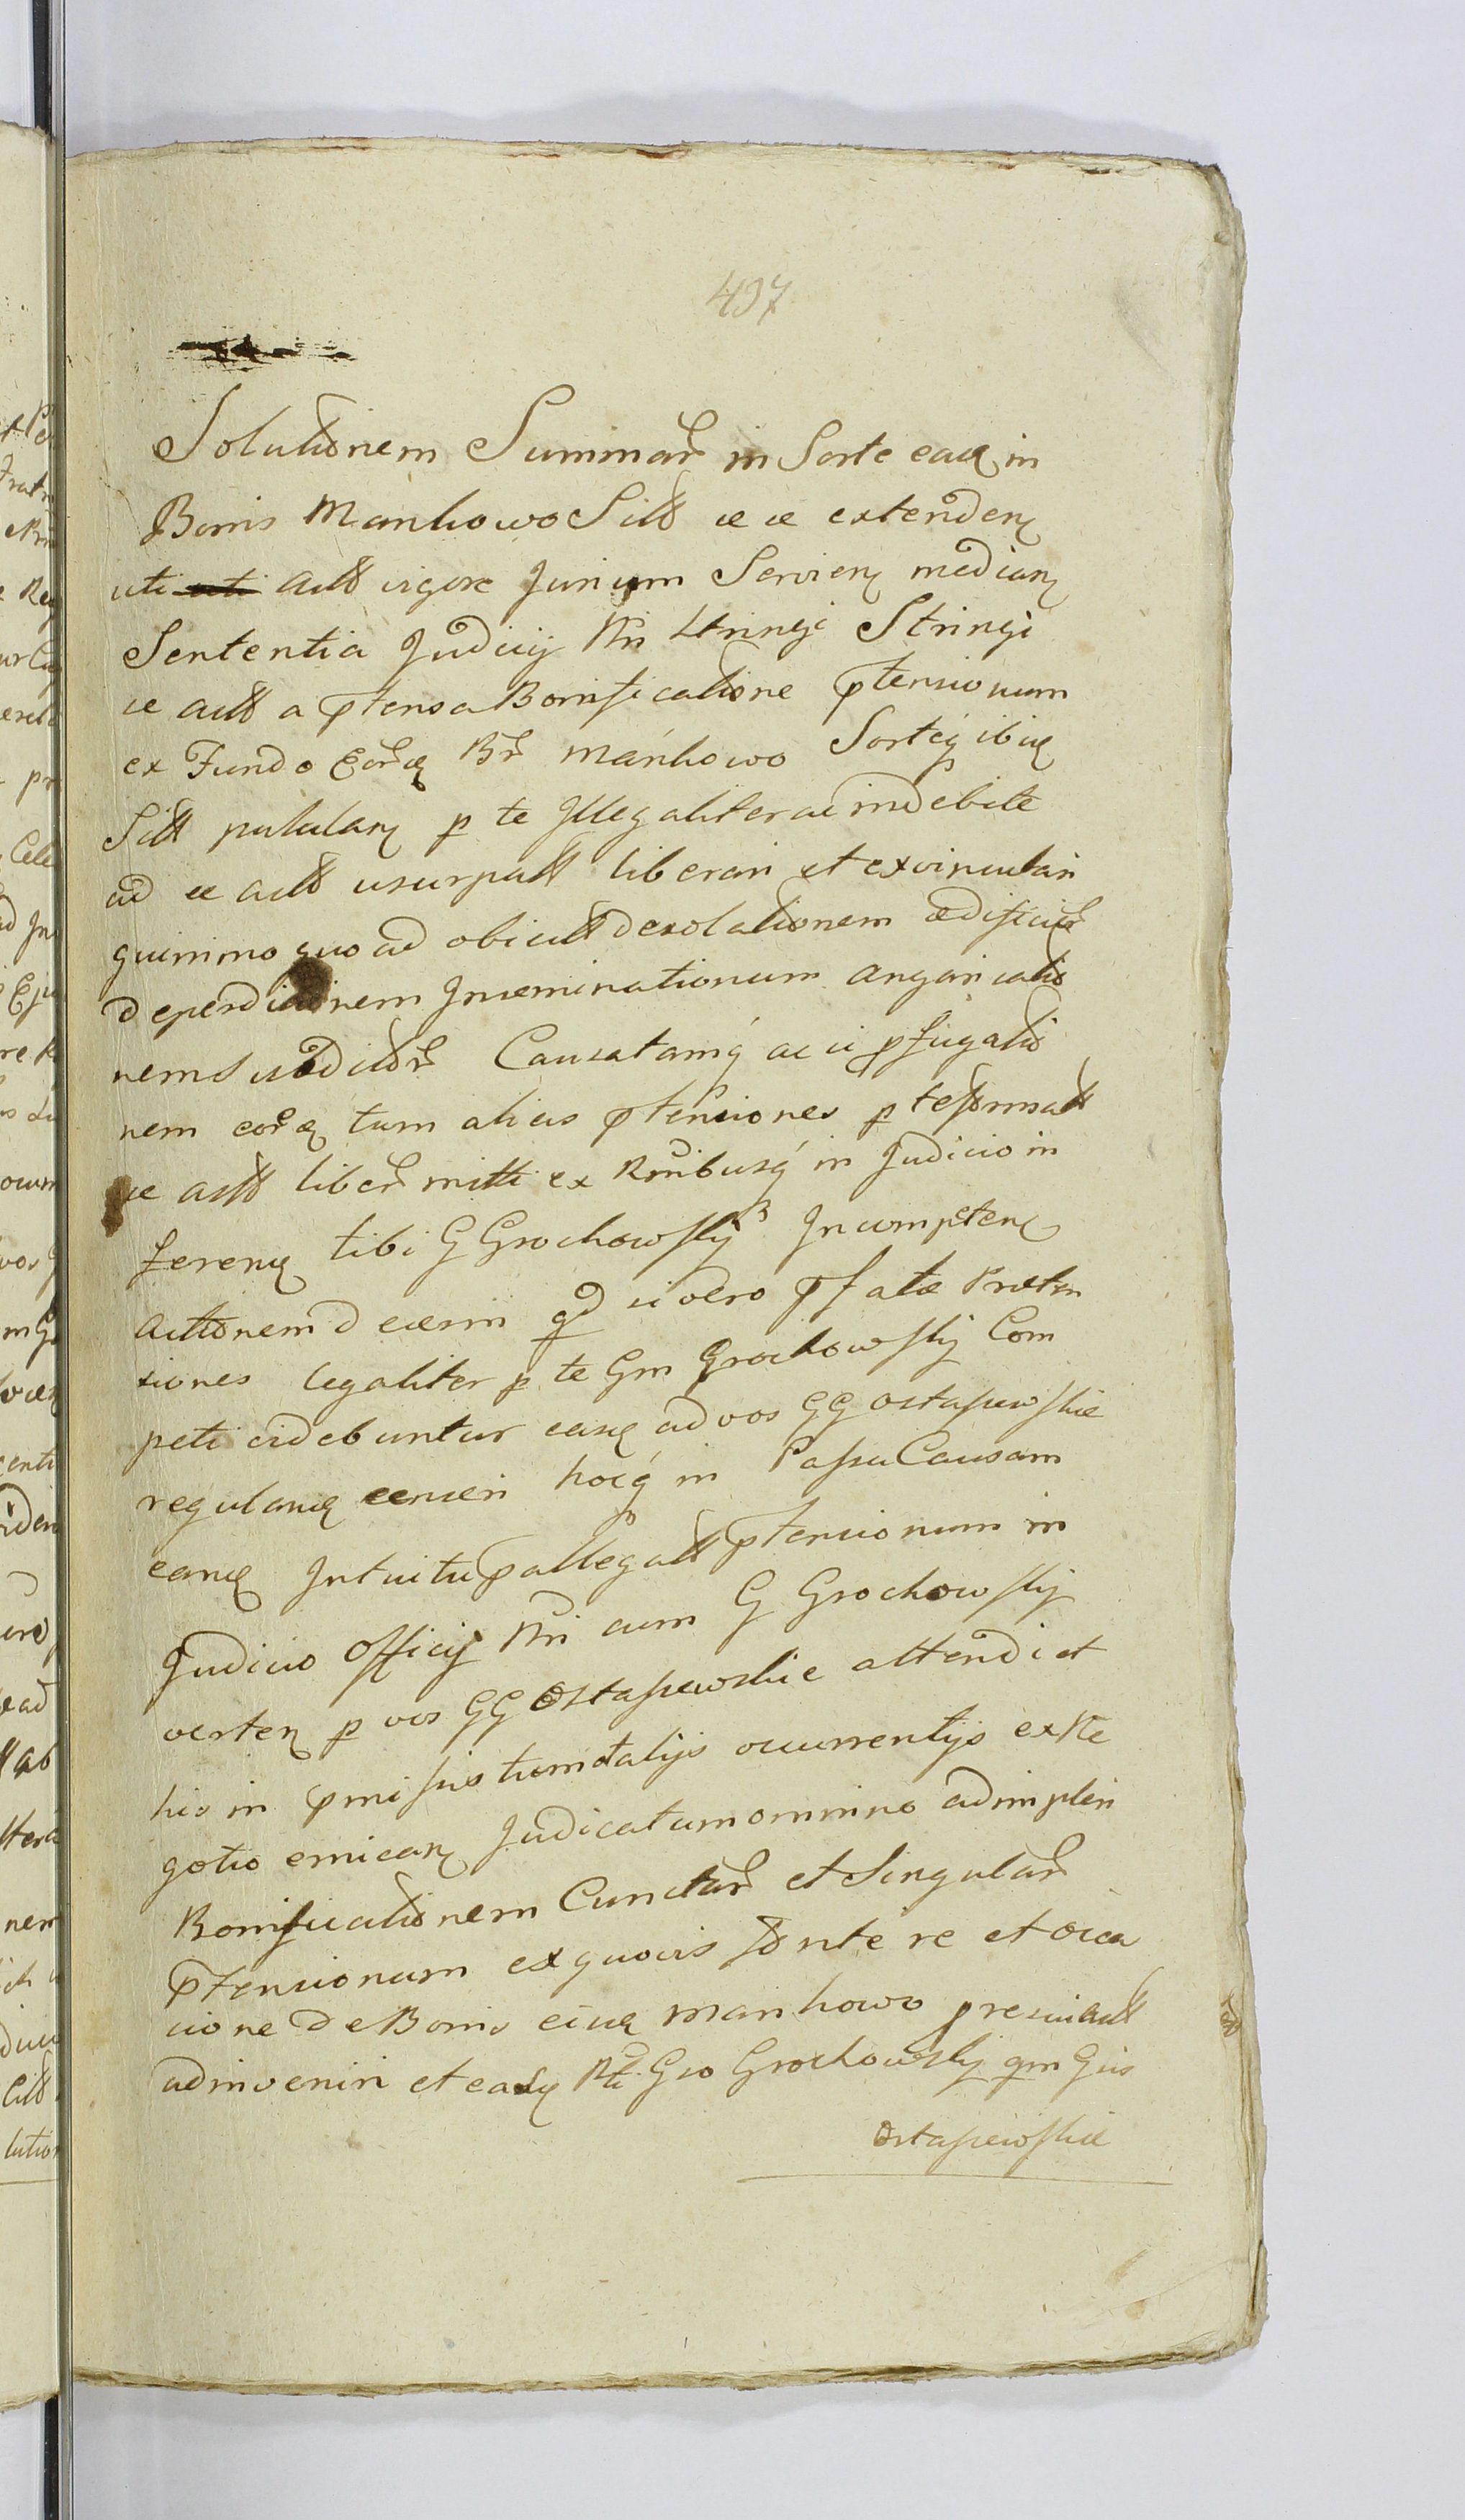 497
Solutionem Summar in Sorte eaq in
Bonis Mankowo Sitt se se extenden
uti uti actt vigore Jurium Servien median
Sententia Judicij Nri Stringi Stringi
se actt a ptensa Bonificatione ptensionum
ex Fundo Eorq Br Mankowo Sorteq ibiq
Sitt pululan p te Illegaliter ac indebite
ad se actt usurpatt liberari et exvinculari
quinimo quo ad obiectt desolationem ædificior
deperditionem Inseminationum angariatio
nem Subditor Causatamq ac si pfugatio
nem eorq tum alias ptensiones p te formatt
se actt liber mitti ex Rnibusq in Judicio in
ferenq tibi G Grochowskij Incompeten
actionem decerni qd si vero pfatæ Præten
siones legaliter p te Gm Grochowskij Com
peti videbuntur easq ad vos GG Ostaszewskie
regulanq censeri hocq in Passu Causam
eanq Intuitu pallegatt ptensionum in
Judicio Officij Nri cum G Grochowskij
verten p vos GG Ostaszewskie attendi et
his in pmissis tum et alijs occurrentijs ex Ne
gotio emican Judicatum omnino adimpleri
Bonificationem Cunctar et Singular
ptensionum ex quovis fonte re et occa
sione de Bonis eisq Mankowo presuiatt
adinveniri et easq Rti Gso Grochowskij qm Gus
Ostaszewskie